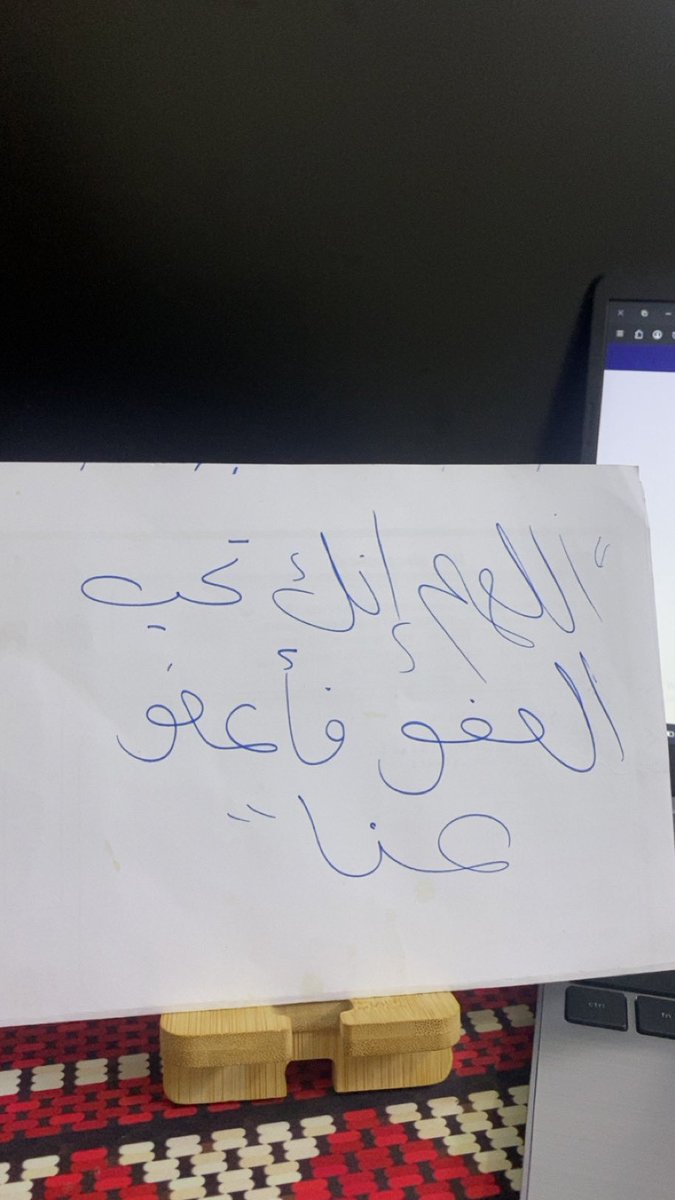 "اللهم إنك تحب
العفو فأعفو
عنا"
ctrl
fn